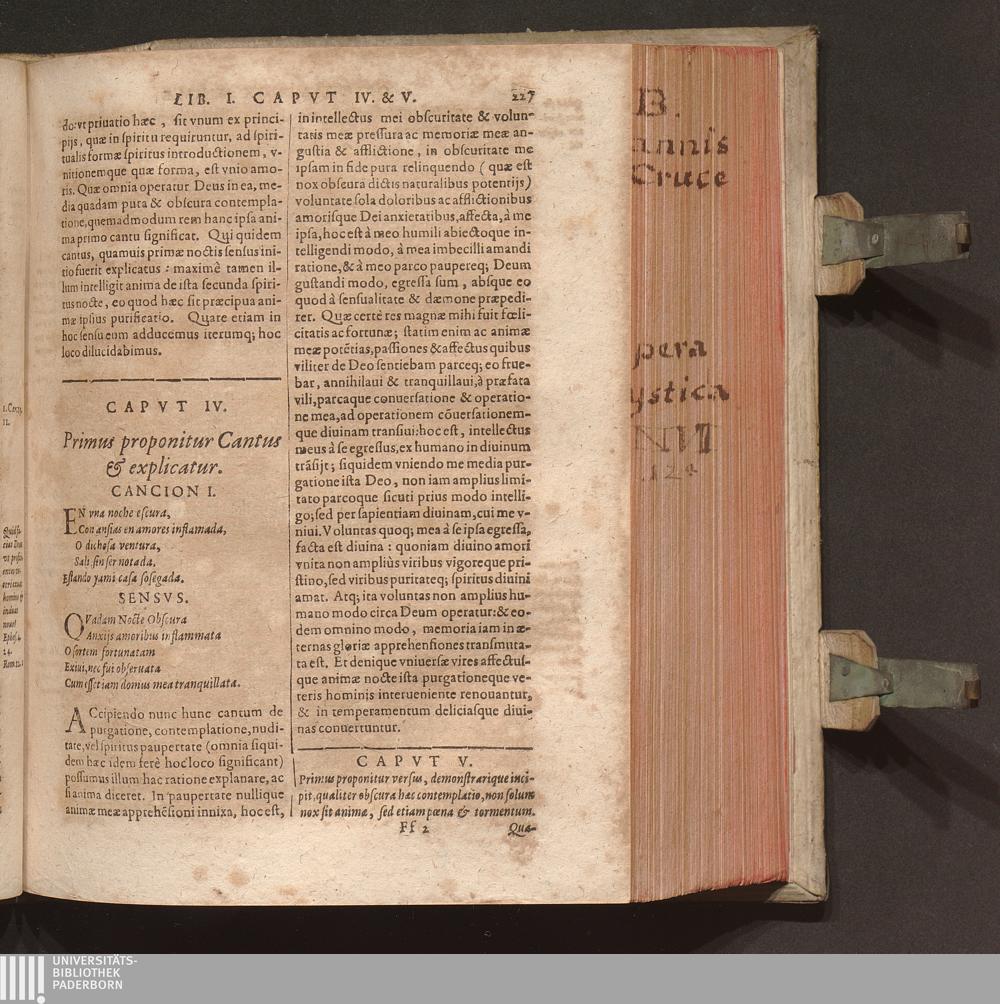 LIB. I. CAPVT IV. & V. 227
do: vt priuatio hæc, ſit vnum ex princi-
pijs, quæ in ſpiritu requiruntur, ad ſpiri-
tualis formæ ſpiritus introductionem, v-
nitionemque quæ forma, eſt vnio amo-
ris. Quæ omnia operatur Deus in ea, me-
dia quadam pura & obſcura contempla-
tione, quemadmodum rem hanc ipſa ani-
ma primo cantu ſignificat. Qui quidem
cantus, quamuis primæ noctis ſenſus ini-
tio fuerit explicatus: maximè tamen il-
lum intelligit anima de iſta ſecunda ſpiri-
tus nocte, eo quod hæc ſit præcipua ani-
mæ ipſius purificatio. Quare etiam in
hoc ſenſu eum adducemus iterumq; hoc
loco dilucidabimus.
CAPVT IV.
Primus proponitur Cantus
& explicatur.
CANCION I.
EN vna noche eſcura,
Con anſias en amores inflamada,
O dichoſa ventura,
Sali ſin ſer notada,
Eſtando ya mi caſa ſoſegada.
SENSVS.
QVadam Nocte Obſcura
Anxijs amoribus inflammata
O ſortem fortunatam
Exiui, nec fui obſeruata
Cum eſſet iam domus mea tranquillata.
ACcipiendo nunc hunc cantum de
purgatione, contemplatione, nudi-
tate, vel ſpiritus paupertate (omnia ſiqui-
dem hæc idem ferè hoc loco ſignificant)
poſſumus illum hac ratione explanare, ac
ſi anima diceret. In paupertate nullique
animæ meæ apprehēſioni innixa, hoc eſt,
in intellectus mei obſcuritate & volun-
tatis meæ preſſura ac memoriæ meæ an-
guſtia & afflictione, in obſcuritate me
ipſam in fide pura relinquendo (quæ eſt
nox obſcura dictis naturalibus potentijs)
voluntate ſola doloribus ac afflictionibus
amoriſque Dei anxietatibus, affecta, à me
ipſa, hoc eſt à meo humili abiectoque in-
telligendi modo, à mea imbecilli amandi
ratione, & à meo parco paupereq; Deum
guſtandi modo, egreſſa ſum, abſque eo
quod à ſenſualitate & dæmone præpedi-
rer. Quæ certè res magnæ mihi fuit fœli-
citatis ac fortunæ; ſtatim enim ac animæ
meæ potētias, paſſiones & affectus quibus
viliter de Deo ſentiebam parceq; eo frue-
bar, annihilaui & tranquillaui, à præfata
vili, parcaque conuerſatione & operatio-
ne mea, ad operationem cōuerſationem-
que diuinam tranſiui: hoc eſt, intellectus
meus à ſe egreſſus, ex humano in diuinum
trāſijt; ſiquidem vniendo me media pur-
gatione iſta Deo, non iam amplius limi-
tato parcoque ſicuti prius modo intelli-
go; ſed per ſapientiam diuinam, cui me v-
niui. Voluntas quoq; mea à ſe ipſa egreſſa,
facta eſt diuina: quoniam diuino amori
vnita non ampliùs viribus vigoreque pri-
ſtino, ſed viribus puritateq; ſpiritus diuini
amat. Atq; ita voluntas non amplius hu-
mano modo circa Deum operatur: & eo-
dem omnino modo, memoria iam in æ-
ternas gloriæ apprehenſiones tranſmuta-
ta eſt. Et denique vniuerſæ vires affectuſ-
que animæ nocte iſta purgationeque ve-
teris hominis interueniente renouantur,
& in temperamentum deliciaſque diui-
nas conuertuntur.
CAPVT V.
Primus proponitur verſus, demonſtrarique inci-
pit, qualiter obſcura hæc contemplatio, non ſolum
nox ſit animæ, ſed etiam pœna & tormentum.
Ff 2 Quæ-
B.
annis
Cruce
pera
ystica
UNIVERSITÄTS-
BIBLIOTHEK
PADERBORN